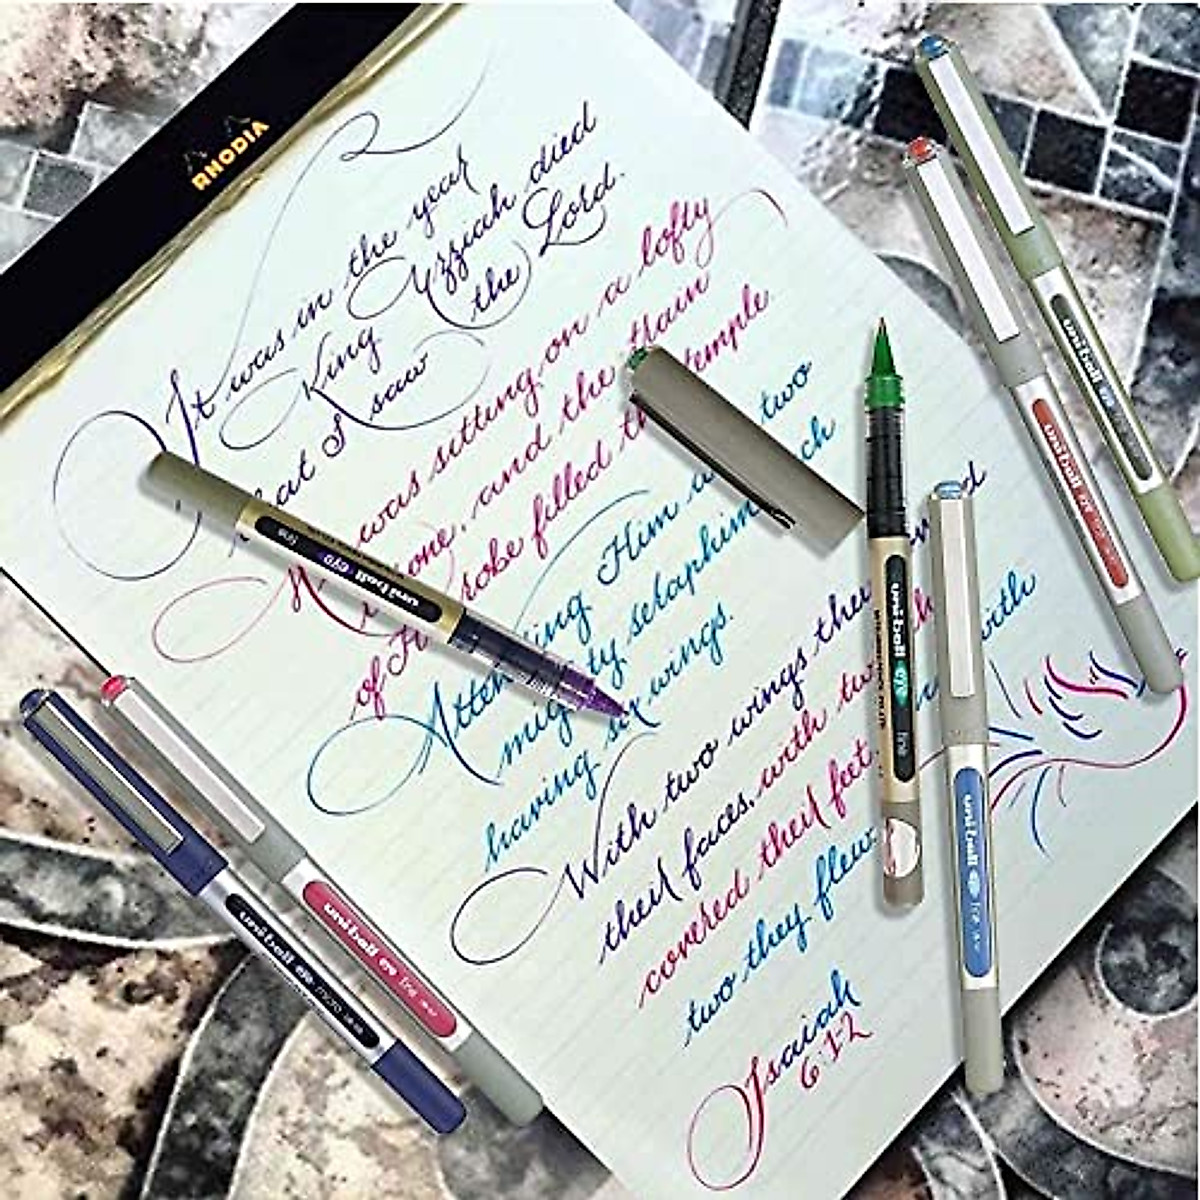 RHODIA
It was in the year
King Uzziah died
that I saw the Lord.
He was sitting on a lofty
throne, and the train
of His robe filled the temple
Attending Him were two
mighty seraphim, each
having six wings.
With two wings they
their faces, with two
covered their feet, with
two they flew.
Isaiah
6:1-2
uni-ball eye fine
uni-ball eye fine
uni-ball eye
uni-ball eye
uni-ball eye fine
uni-ball eye fine
uni-ball eye micro